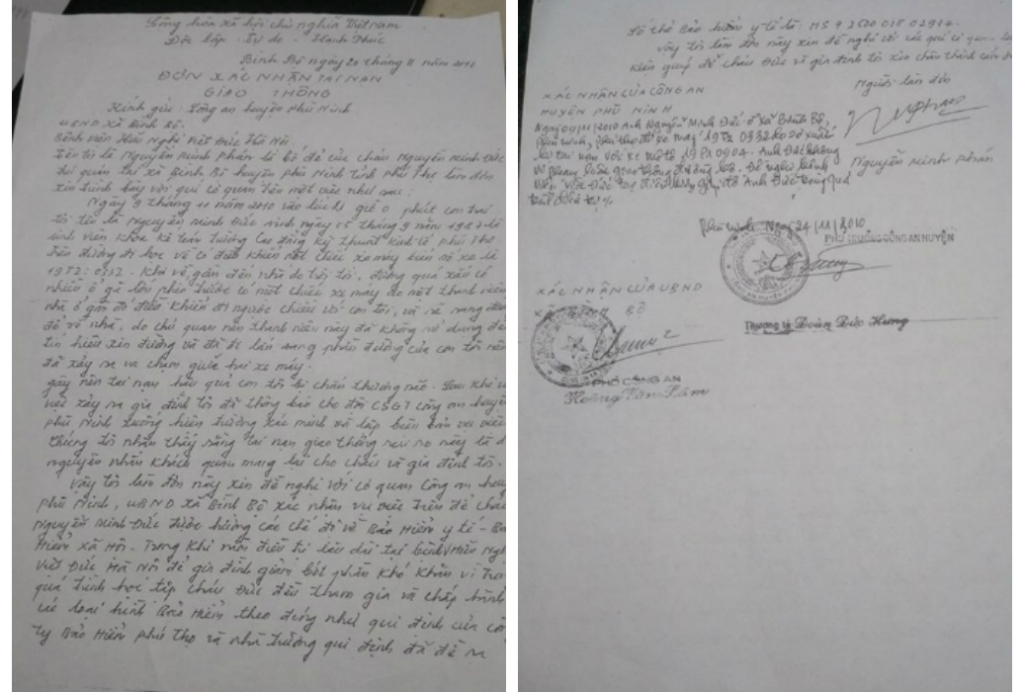 Cộng hòa xã hội chủ nghĩa Việt Nam
Độc lập - Tự do - Hạnh Phúc
Bình Bộ ngày 20 tháng 11 năm 2010
ĐƠN XÁC NHẬN TAI NẠN
GIAO THÔNG
Kính gửi: Công an huyện Phù Ninh
UBND Xã Bình Bộ.
Bệnh viện Hữu Nghị Việt Đức Hà Nội
Tên tôi là Nguyễn Minh Phấn là bố đẻ của cháu Nguyễn Minh Đức
trú quán tại xã Bình Bộ huyện Phù Ninh Tỉnh Phú Thọ làm đơn
xin trình bày với quí cơ quan làm một việc như sau:
Ngày 9 tháng 11 năm 2010 vào lúc 11 giờ 0 phút con trai
tôi tên là Nguyễn Minh Đức sinh ngày 15 tháng 9 năm 1987 là
sinh viên khoa kế toán trường Cao đẳng kỹ thuật kinh tế phú thọ
trên đường đi học về có điều khiển một chiếc xe máy biển số xe là
19F2: 0332 - Khi về gần đến nhà do trời tối, đường quá xấu có
nhiều ổ gà lại phía trước có một chiếc xe máy do một thanh niên
nhà ở gần đó điều khiển đi ngược chiều với con tôi, và rẽ sang đường
để về nhà, do chủ quan nên thanh niên này đã không sử dụng đèn
tín hiệu xin đường và đã đi lấn sang phần đường của con tôi nên
đã xảy ra va chạm giữa hai xe máy.
gây nên tai nạn hậu quả con tôi bị chấn thương não. Sau khi
việc xảy ra gia đình tôi đã thông báo cho đội CSGT công an huyện
phù Ninh xuống hiện trường xác minh và lập biên bản vụ việc
Chúng tôi nhận thấy rằng tai nạn giao thông rủi ro này là
nguyên nhân khách quan mang lại cho cháu và gia đình tôi.
Vậy tôi làm đơn này xin đề nghị với cơ quan Công an huyện
phù Ninh, UBND xã Bình Bộ xác nhận vụ việc trên để cháu
Nguyễn Minh Đức được hưởng các chế độ về Bảo Hiểm y tế -
Hiểm xã Hội. Trong khi nằm điều trị lâu dài tại bệnh viện Hữu Nghị
Việt Đức Hà Nội để gia đình giảm bớt phần khó khăn vì trong
quá trình học tập cháu Đức đều tham gia và chấp hành
các loại hình Bảo Hiểm theo đúng như qui định của công
ty Bảo Hiểm phú thọ và nhà trường qui định đã đề ra
Số thẻ Bảo hiểm y tế là. HS 9 2520 015 02914.
vậy tôi làm đơn này xin đề nghị với các quí cơ quan
kiện giúp đỡ cháu Đức và gia đình tôi xin chân thành cảm ơn
Người làm đơn
XÁC NHẬN CỦA CÔNG AN
HUYỆN PHÙ NINH
Ngày 09/11/2010 Anh Nguyễn Minh Đức ở xã Bình Bộ,
Phù Ninh, Phú Thọ đi xe máy 19F2 0332
tai nạn với xe mô tô 19F1 0904. Anh Đức không
vi phạm luật giao thông đường bộ. Đề nghị bệnh
viện Việt Đức Anh Đức
Nguyễn Minh Phấn
Phù Ninh, Ngày 24/11/2010
PHÓ TRƯỞNG CÔNG AN HUYỆN
Thượng tá Đoàn Đức Hưng
XÁC NHẬN CỦA UBND
XÃ BÌNH BỘ
PHÓ CÔNG AN
Hoàng Văn Lâm